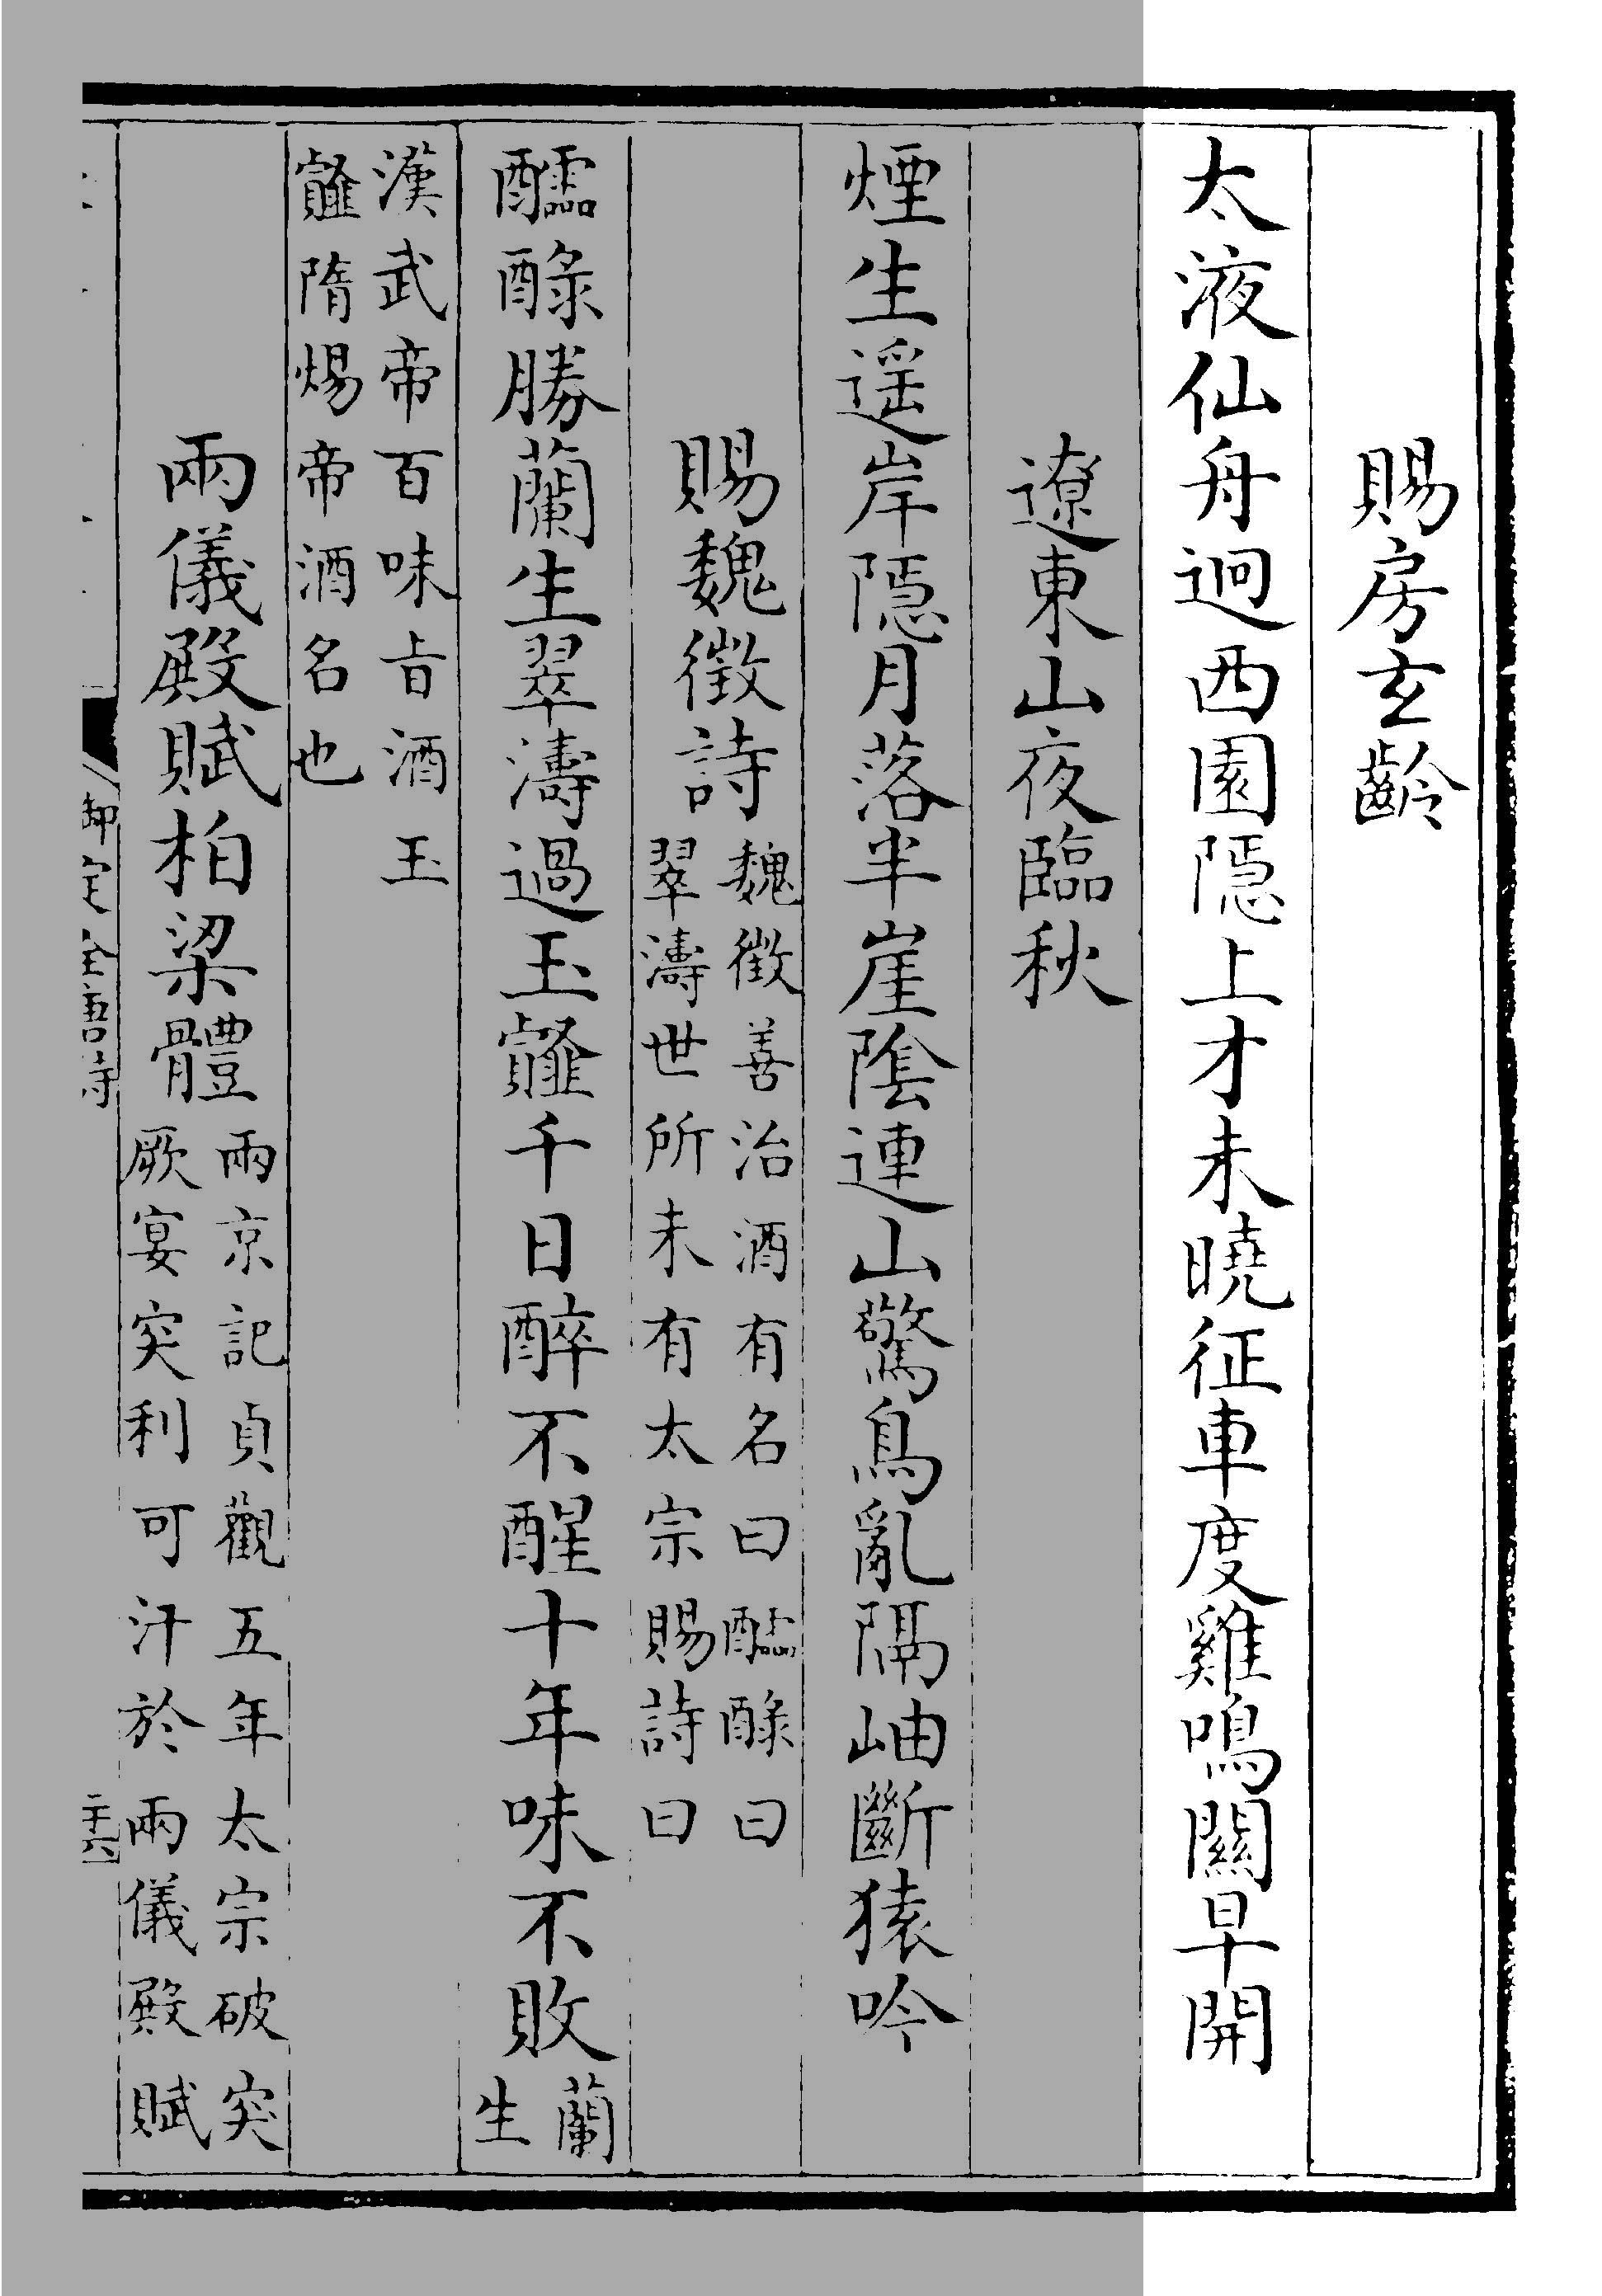 賜房玄齡
太液仙舟迥西園隱上才未曉征車度雞鳴關早開
遼東山夜臨秋
煙生遥岸隱月落半崖陰連山驚鳥亂隔岫斷猿吟
賜魏徵詩
魏徵善治酒有名曰醽醁曰
翠濤世所未有太宗賜詩曰
醽醁勝蘭生翠濤過玉薤千日醉不醒十年味不敗
蘭
生
漢武帝百味旨酒玉
薤隋煬帝酒名也
兩儀殿賦柏梁體
兩京記貞觀五年太宗破突
厥宴突利可汗於兩儀殿賦
御定全唐詩
二十六